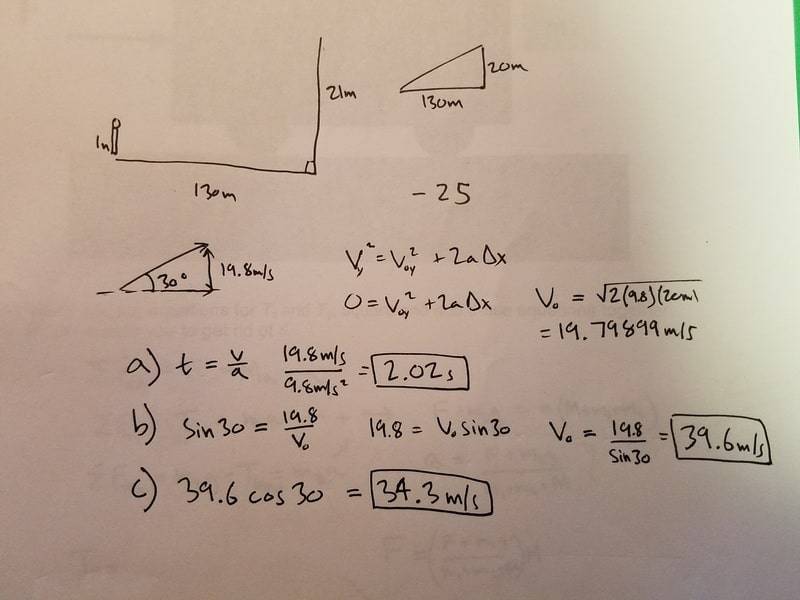 21m
20m
1m
130m
130m
- 25
30°
19.8m/s
Vy² = Voy² + 2aΔx
0 = Voy² + 2aΔx
Vo = √2(9.8)(20m)
= 19.79899m/s
a) t = v/a 19.8m/s / 9.8m/s² = 2.02s
b) Sin30 = 19.8/Vo 19.8 = Vo Sin30 Vo = 19.8/Sin30 = 39.6m/s
c) 39.6 cos 30 = 34.3m/s